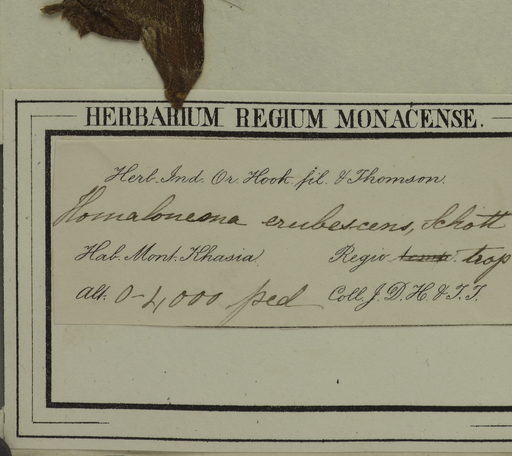 HERBARIUM REGIUM MONACENSE.
Herb. Ind. Or. Hook. fil. & Thomson.
Homalonema erubescens, Schott
Hab. Mont. Khasia. Regio temp. trop
Alt. 0-4,000 ped Coll. J. D. H. & T. T.